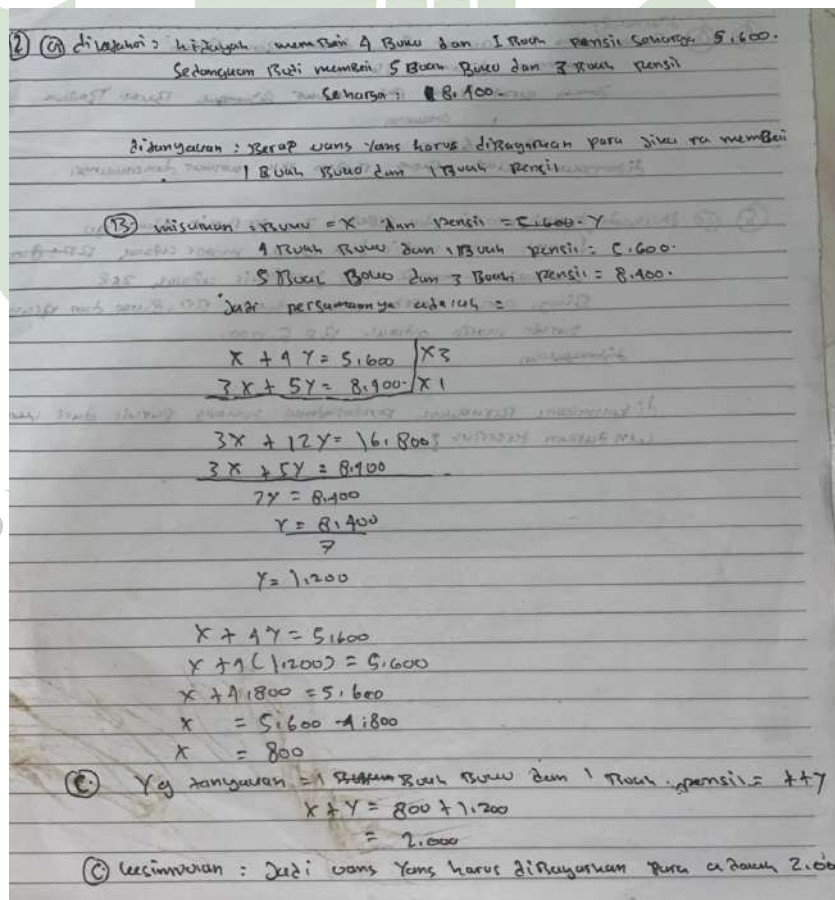 2 a diketahui : hidayah membeli 4 Buku dan 1 Buah pensil seharga 5.600.
Sedangkan Budi membeli 5 Buah Buku dan 3 Buah pensil
Seharga : 8.400.
ditanyakan : Berap uang yang harus diBayarkan para jika ia membeli
1 Buah Buku dan 1 Buah pensil
B. misalnan : Buku = X dan pensil = Y
4 Buah Buku dan 1 Buah pensil = 5.600.
5 Buah Buku dan 3 Buah pensil = 8.400.
Jadi persamaannya adalah =
X + 4Y = 5.600 | X3
3X + 5Y = 8.400. | X1
3X + 12Y = 16.800
3X + 5Y = 8.400 -
7Y = 8.400
Y = 8.400
7
Y = 1.200
X + 4Y = 5.600
X + 4(1.200) = 5.600
X + 4.800 = 5.600
X = 5.600 - 4.800
X = 800
C. Yg tanyakan = 1 Buah Buku dan 1 Buah pensil = X+Y
X + Y = 800 + 1.200
= 2.000
C kesimpulan : Jadi uang yang harus diBayarkan para adalah 2.00